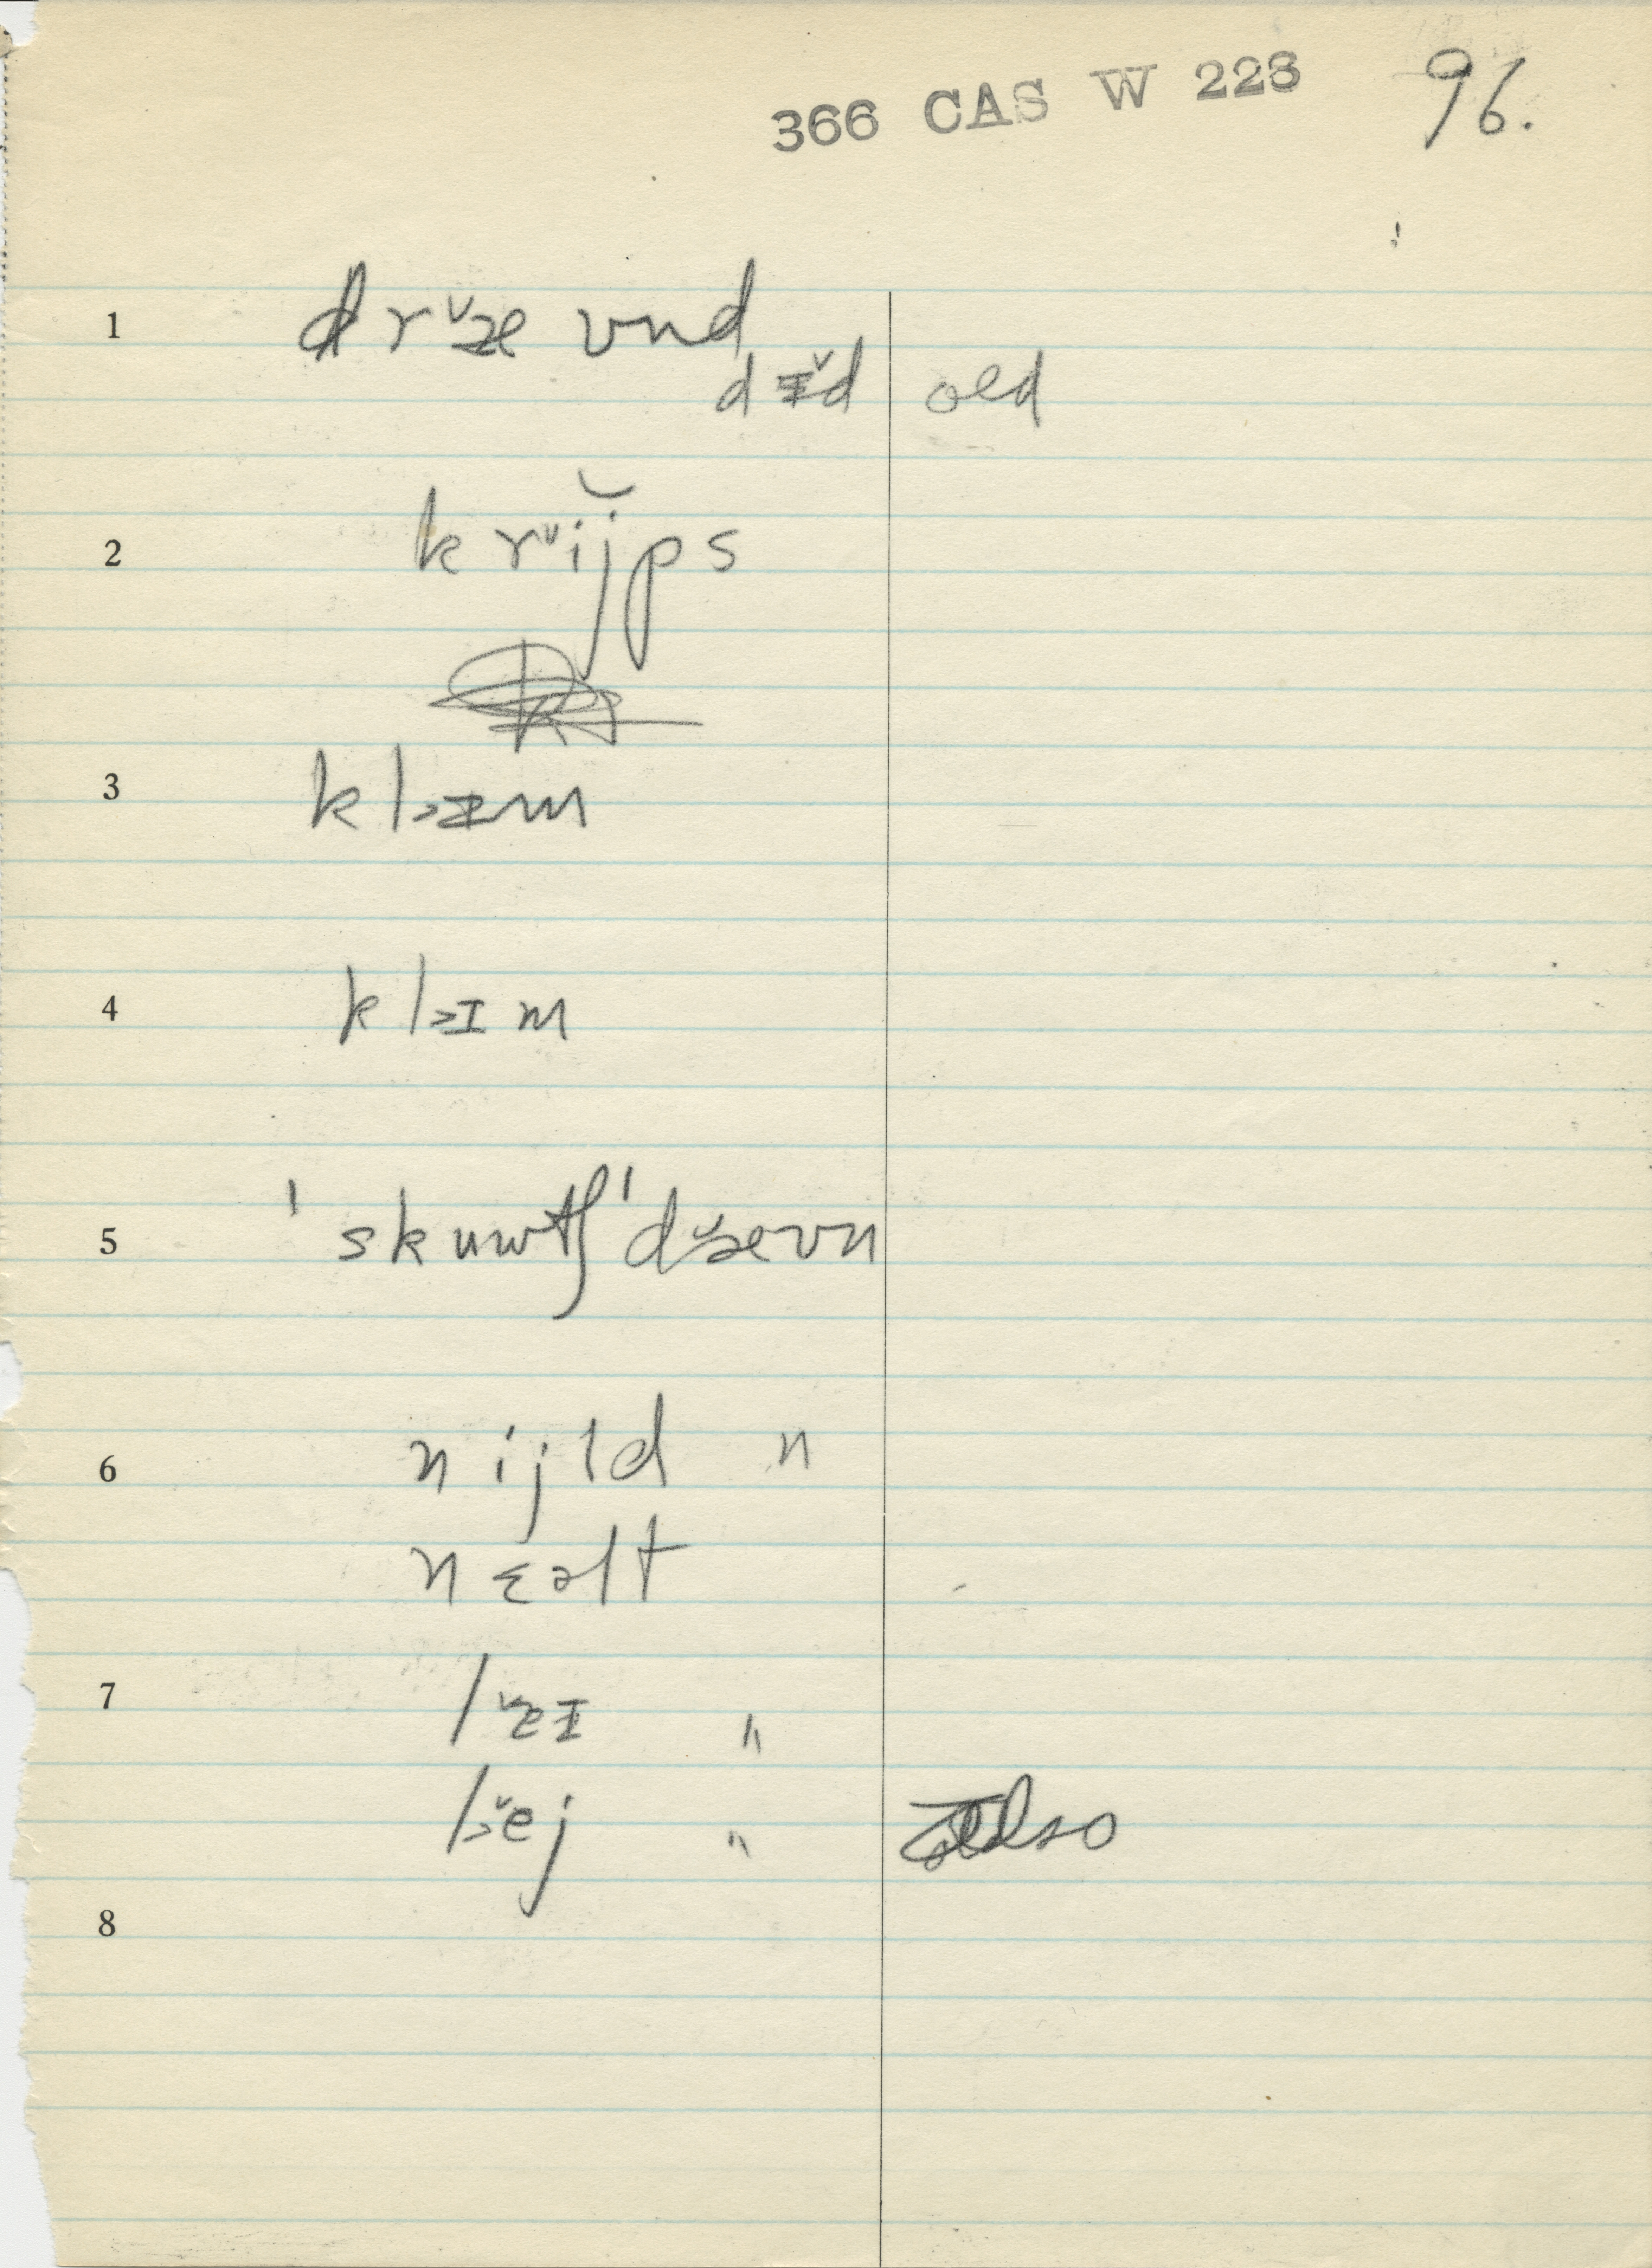 366 CAS W 223 96.
1 dr˅æ vnd
dɪ̌d old
2 kr˅ijps
3 kl>ɪm
4 kl>ɪm
5 ˈskuwtʃˈd˅æevn
6 nijld n
nɛəlt
7 l˅æɪ "
l>˅ej " also
8